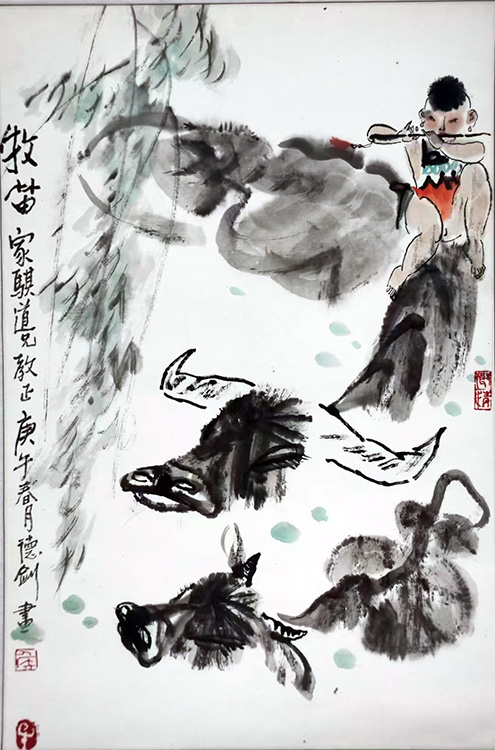 牧笛 家騏道兄教正 庚午春月德剑畫